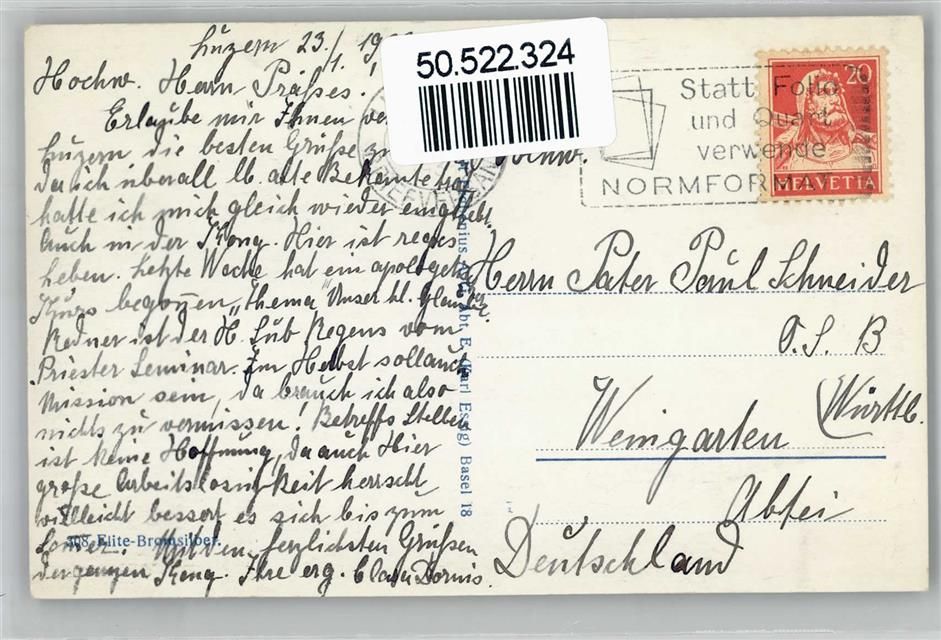 Luzern 23./1. 19
Hochw. Herrn Präses!
Erlaube mir Ihnen
Luzern die besten Grüße
Da ich überall lb. alte Bekannte
hatte ich mich gleich wieder eingelebt.
Auch in der Kong. Hier ist reges
Leben. Letzte Woche hat ein apologet.
Kurs begonnen, Thema "Unser hl. Glaube".
Redner ist der H. Sub Regens vom
Priester Seminar. Im Herbst soll auch
Mission sein, da brauch ich also
nichts zu vermissen! Betreffs Stellen
ist keine Hoffnung, da auch Hier
große Arbeitslosigkeit herrscht
vielleicht bessert es sich bis zum
Mit den herzlichsten Grüßen
der ganzen Kong. Ihre erg.
308 Elite-Bromsilber.
Abt. E. (Karl Essig) Basel 18
50.522.324
Statt Folio
und Quart
verwende
NORMFORMAT
20
HELVETIA
Hochw.
Herrn Pater Paul Schneider
O. S. B
Weingarten (Württb.
Abtei
Deutschland